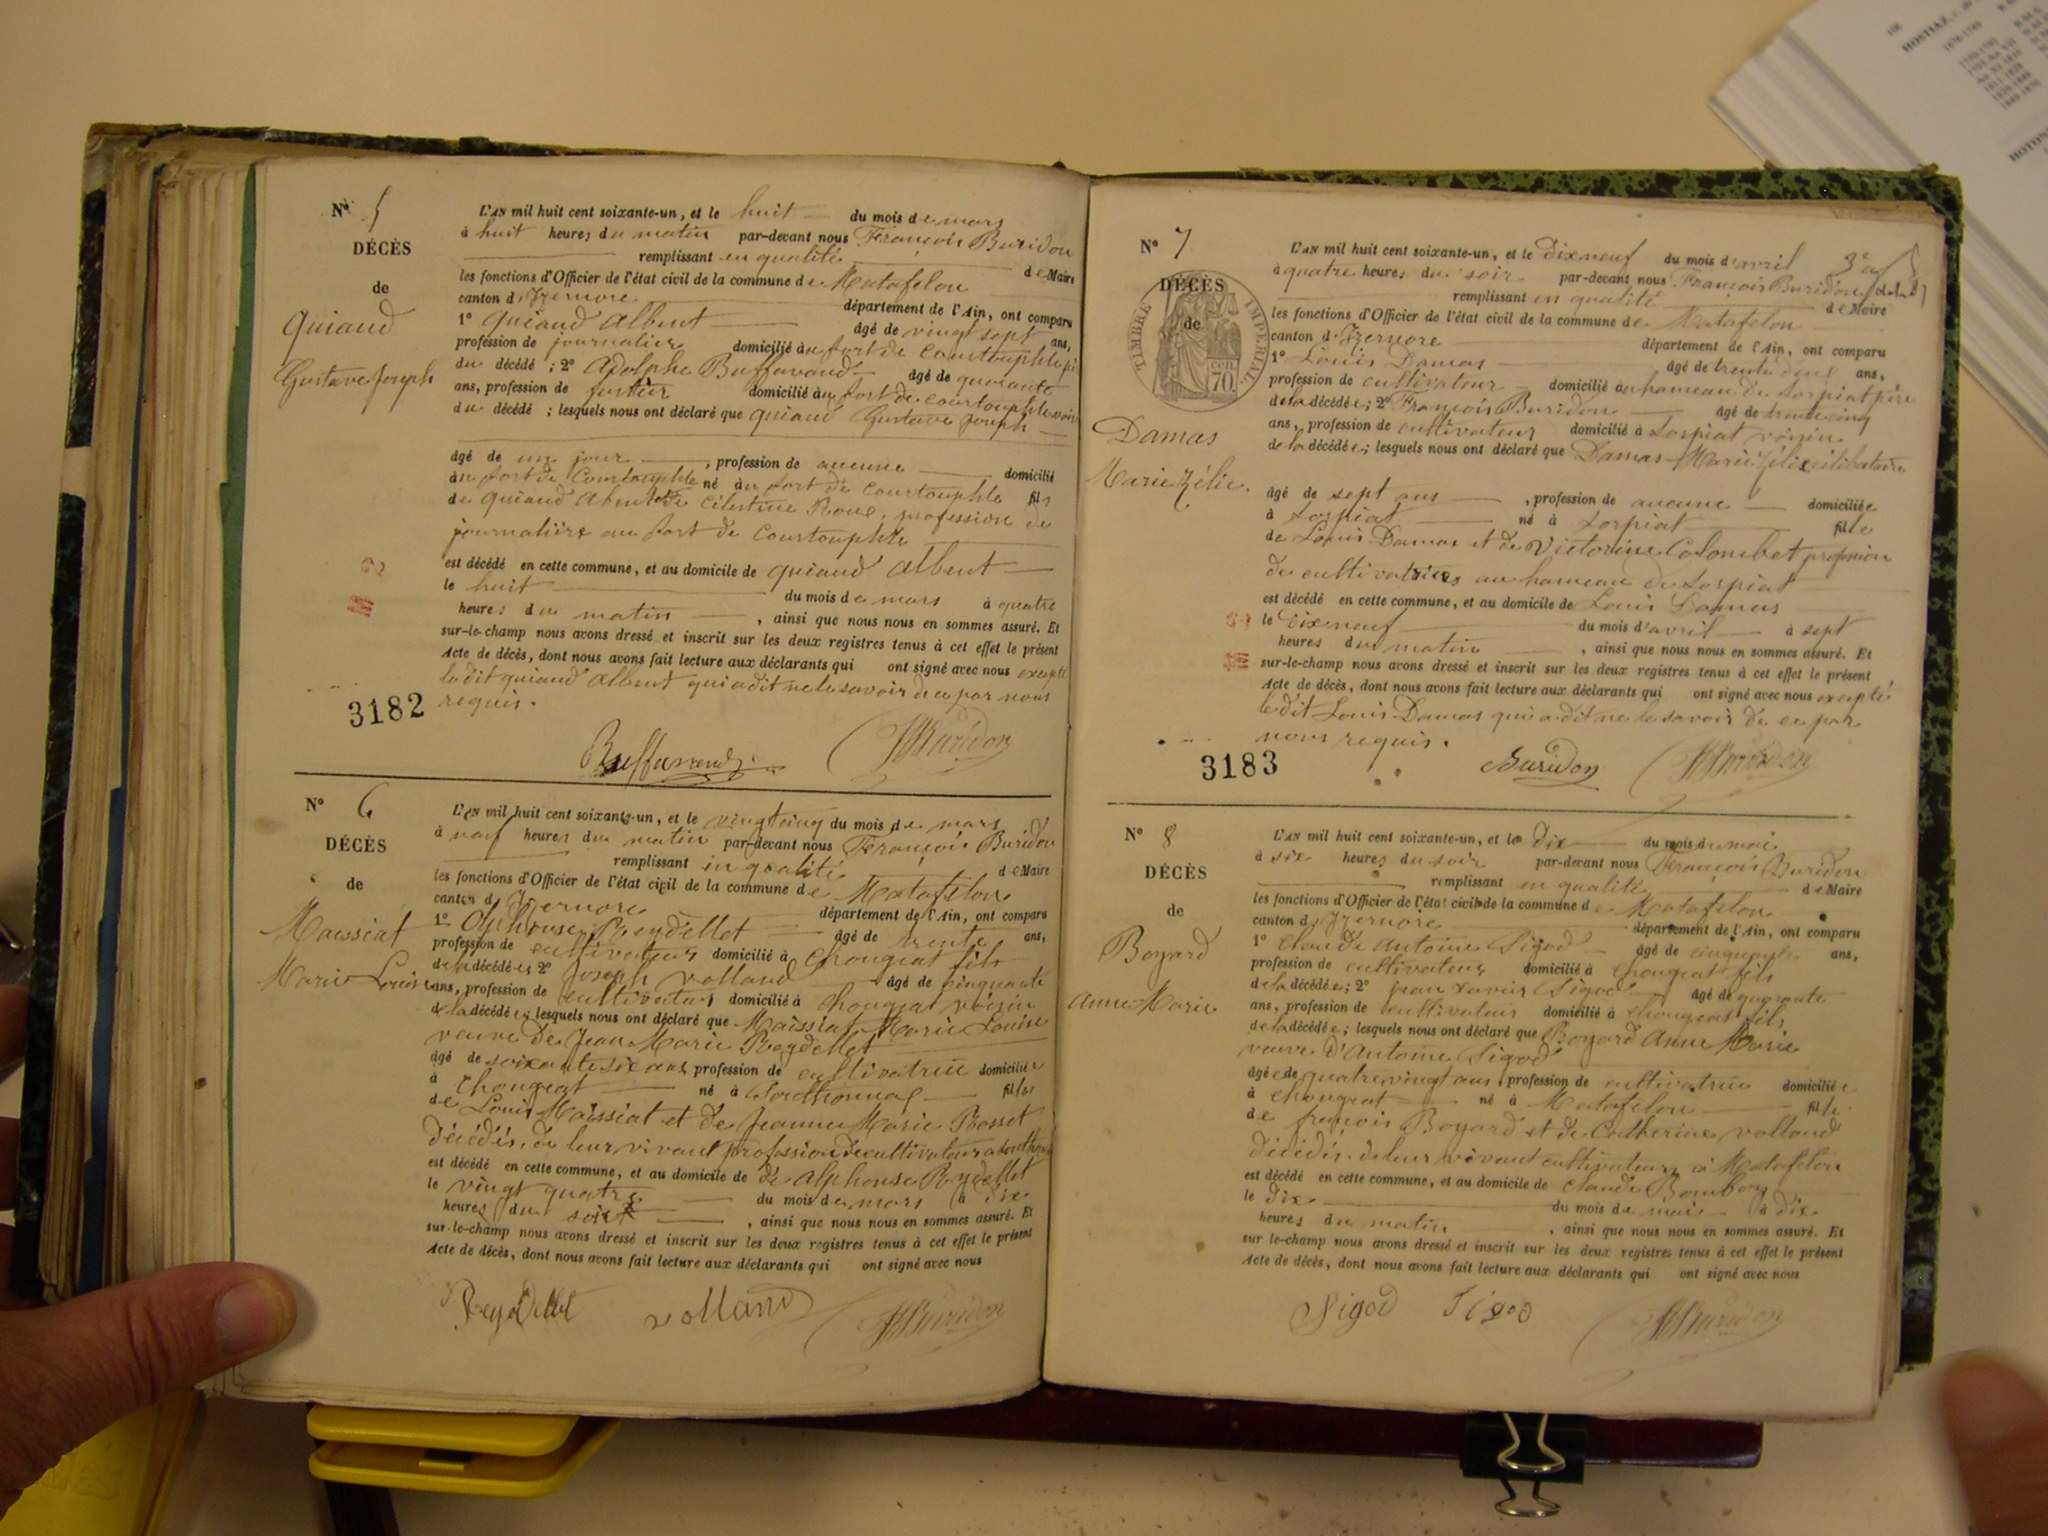 Nº 5
DÉCÈS
de
Quiaud
Gustave Joseph
L'AN mil huit cent soixante-un, et le huit du mois de mars
à huit heures du matin par-devant nous François Buridon
remplissant en qualité de Maire
les fonctions d'Officier de l'état civil de la commune de Matafelon
canton d'Izernore département de l'Ain, ont comparu
1º Quiaud Albent âgé de vingt sept ans,
profession de journalier domicilié au port de Courtouphle
du décédé ; 2º Adolphe Buffavand âgé de quarante
ans, profession de domicilié au port de courtouphle voisin
du décédé ; lesquels nous ont déclaré que quiaud Gustave Joseph
âgé de un jour , profession de aucune domicilié
au port de Courtouphle né au port de Courtouphle fils
de quiaud Albent et de Célestine Roux, profession de
journalière au port de Courtouphle
est décédé en cette commune, et au domicile de quiaud Albent
le huit du mois de mars à quatre
heures du matin , ainsi que nous nous en sommes assuré. Et
sur-le-champ nous avons dressé et inscrit sur les deux registres tenus à cet effet le présent
Acte de décès, dont nous avons fait lecture aux déclarants qui ont signé avec nous excepté
le dit quiaud Albent qui a dit ne le savoir de ce par nous
requis.
3182
Buffavand Buridon
Nº 6
DÉCÈS
de
Maissiat
Marie Louise
L'AN mil huit cent soixante-un, et le vingt cinq du mois de mars
à neuf heures du matin par-devant nous François Buridon
remplissant en qualité de Maire
les fonctions d'Officier de l'état civil de la commune de Matafelon
canton d'Izernore département de l'Ain, ont comparu
1º Alphonse Reydellet âgé de trente ans,
profession de cultivateur domicilié à Chougeat fils
de la décédée; 2º Joseph Volland âgé de cinquante
ans, profession de cultivateur domicilié à Chougeat voisin
de la décédée; lesquels nous ont déclaré que Maissiat Marie Louise
veuve de Jean Marie Reydellet
âgé de soixante six ans, profession de cultivatrice domiciliée
à Chougeat né à fille
de Louis Maissiat et de Jeanne Marie Rosset
décédés, de leur vivant profession de cultivateurs
est décédé en cette commune, et au domicile de de Alphonse Reydellet
le vingt quatre du mois de mars à dix
heures du soir , ainsi que nous nous en sommes assuré. Et
sur-le-champ nous avons dressé et inscrit sur les deux registres tenus à cet effet le présent
Acte de décès, dont nous avons fait lecture aux déclarants qui ont signé avec nous
Reydellet volland Buridon
Nº 7
DÉCÈS
de
TIMBRE IMPÉRIAL
70
Damas
Marie Zélie.
L'AN mil huit cent soixante-un, et le dix neuf du mois d'avril
à quatre heures du soir par-devant nous François Buridon
remplissant en qualité de Maire
les fonctions d'Officier de l'état civil de la commune de Matafelon
canton d'Izernore département de l'Ain, ont comparu
1º Louis Damas âgé de trente deux ans,
profession de cultivateur domicilié au hameau de Sorpiat père
de la décédée; 2º François Buridon âgé de trente cinq
ans, profession de cultivateur domicilié à Sorpiat voisin
de la décédée; lesquels nous ont déclaré que Damas Marie Zélie célibataire
âgé de sept ans , profession de aucune domiciliée
à Sorpiat né à Sorpiat fille
de Louis Damas et de Victorine Colombet profession
de cultivatrice au hameau de Sorpiat
est décédé en cette commune, et au domicile de Louis Damas
le dix neuf du mois d'avril à sept
heures du matin , ainsi que nous nous en sommes assuré. Et
sur-le-champ nous avons dressé et inscrit sur les deux registres tenus à cet effet le présent
Acte de décès, dont nous avons fait lecture aux déclarants qui ont signé avec nous excepté
le dit Louis Damas qui a dit ne le savoir de ce par
nous requis.
3183
Buridon Buridon
Nº 8
DÉCÈS
de
Boyard
Anne Marie
L'AN mil huit cent soixante-un, et le dix du mois de mai
à six heures du soir par-devant nous François Buridon
remplissant en qualité de Maire
les fonctions d'Officier de l'état civil de la commune de Matafelon
canton d'Izernore département de l'Ain, ont comparu
1º Claude Antoine Sigod âgé de cinquante ans,
profession de cultivateur domicilié à Chougeat fils
de la décédée; 2º jean xavier Sigod âgé de quarante
ans, profession de cultivateur domicilié à Chougeat fils
de la décédée; lesquels nous ont déclaré que Boyard Anne Marie
veuve d'Antoine Sigod
âgée de quatre vingt ans, profession de cultivatrice domiciliée
à Chougeat né à Matafelon fille
de françois Boyard et de Catherine volland
décédés de leur vivant cultivateurs à Matafelon
est décédé en cette commune, et au domicile de Claude
le dix du mois de mai à dix
heures du matin , ainsi que nous nous en sommes assuré. Et
sur le-champ nous avons dressé et inscrit sur les deux registres tenus à cet effet le présent
Acte de décès, dont nous avons fait lecture aux déclarants qui ont signé avec nous
Sigod Sigod Buridon